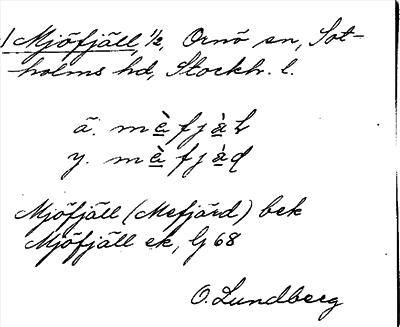 Mjöfjäll, ½, Ornö sn, Sot-
holms hd, Stockh. l.
ä. mèfjàḷ
y. mèfjàɖ
Mjöfjäll (Mefjärd) bek
Mjöfjäll ek, Gj 68
O. Lundberg